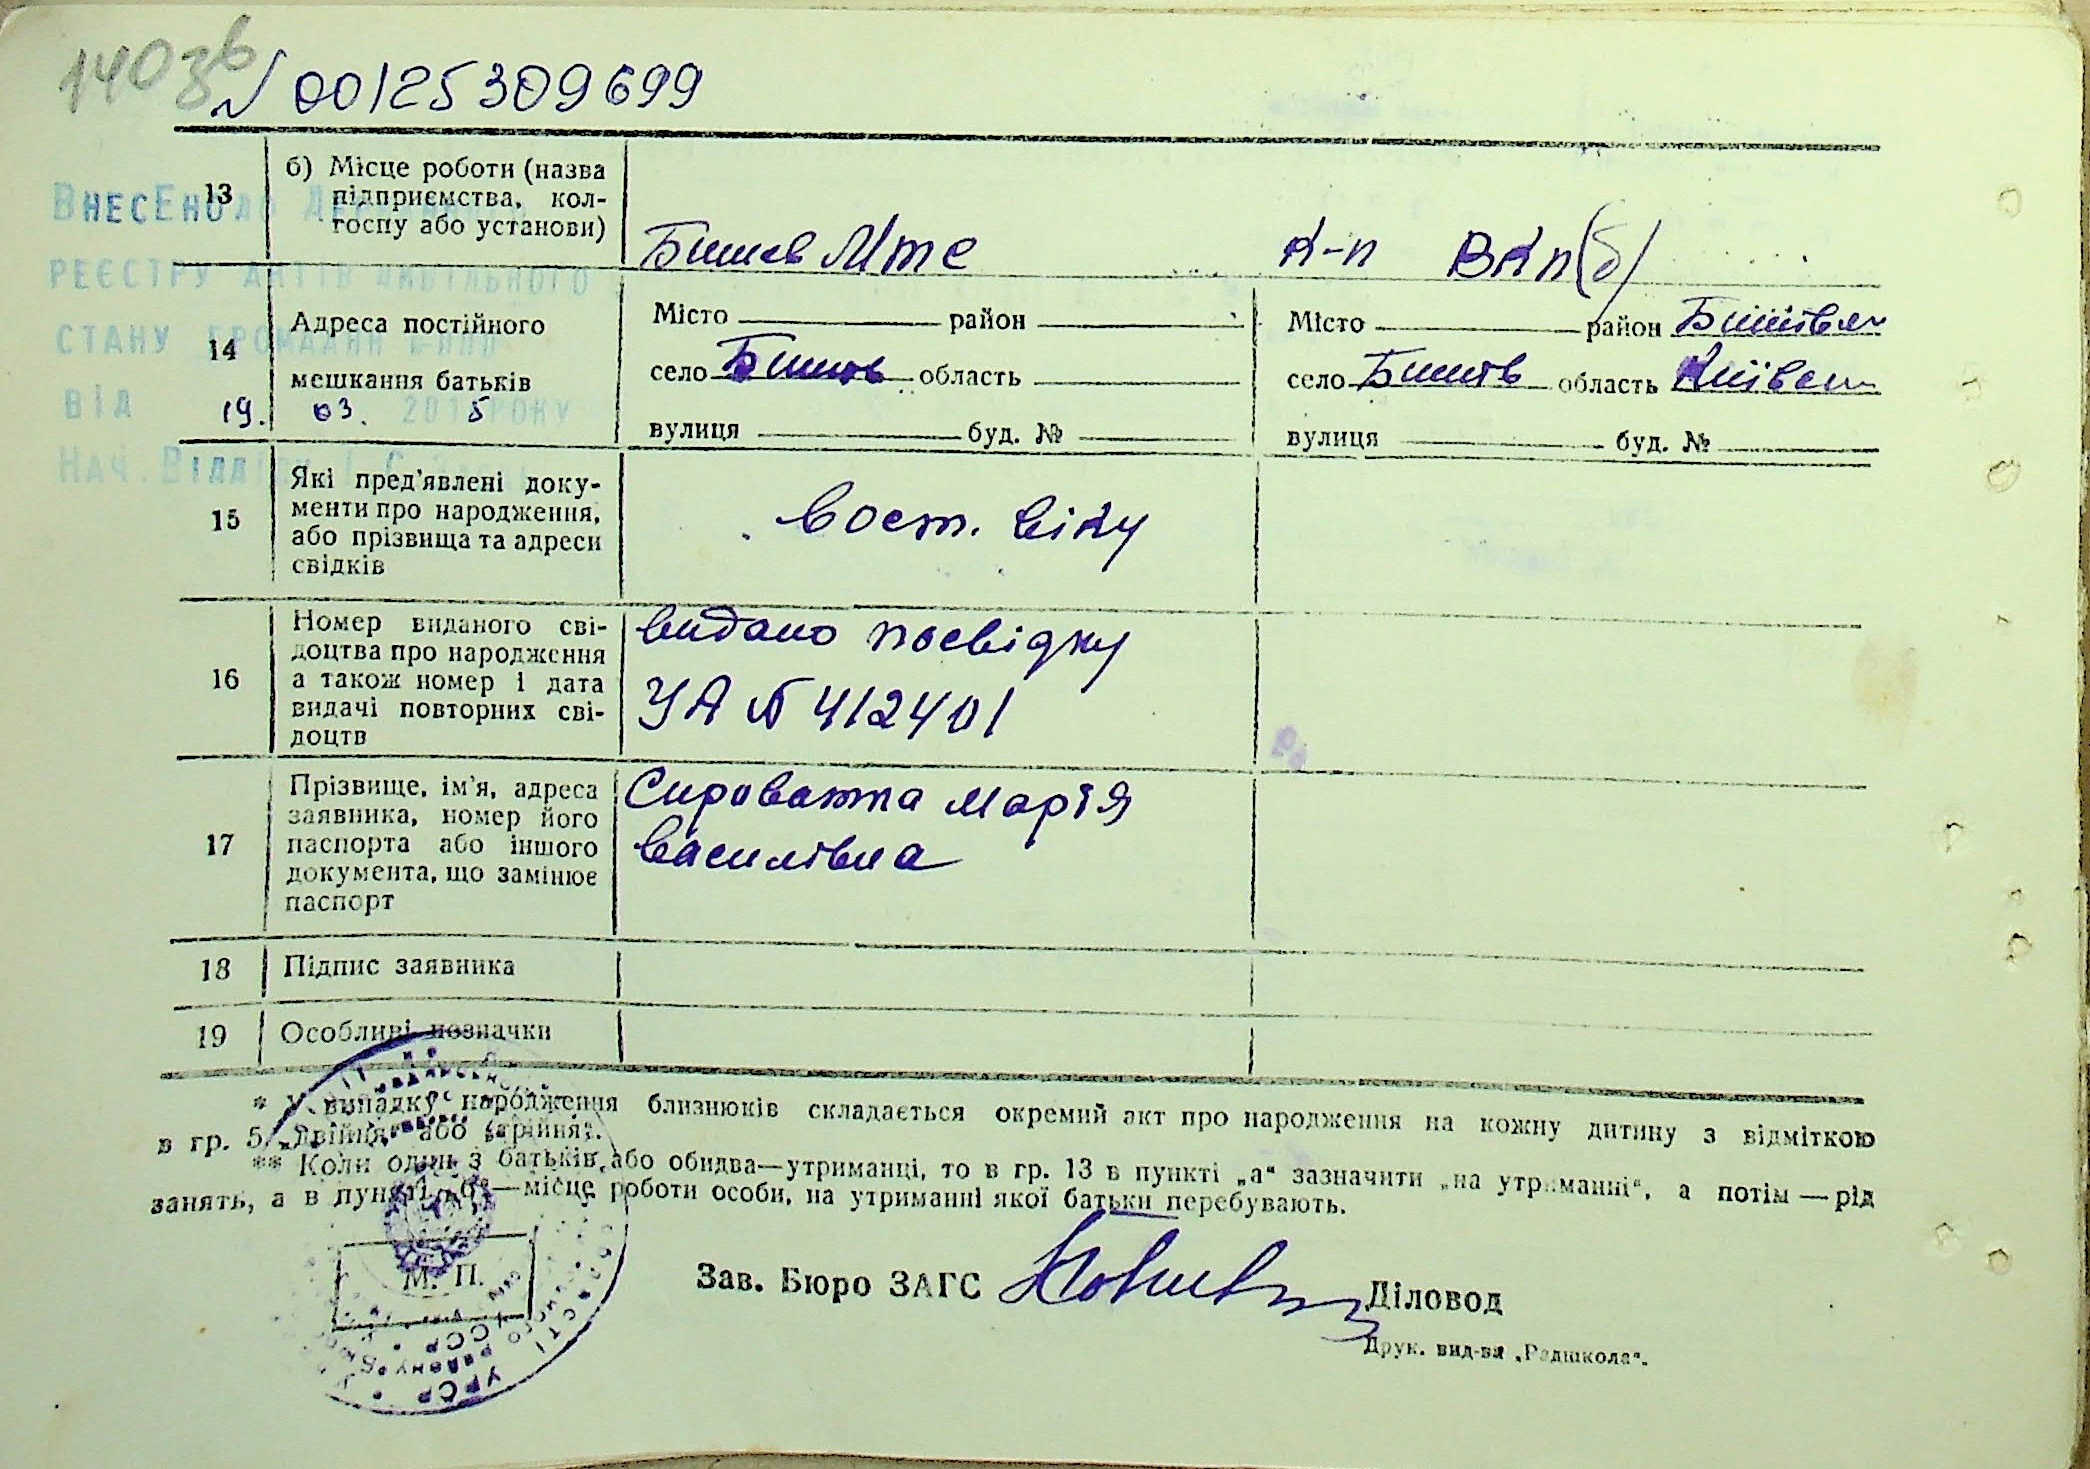 140зв
№ 00125309699
13
б) Місце роботи (назва
підприємства, кол-
госпу або установи)
Бишев Мтс
К-п ВКп(б)
ВнесЕно до Державного
РЕЄСТРУ АКТІВ ЦИВІЛЬНОГО
СТАНУ ГРОМАДЯН
ВІД 19. 03. 2015 РОКУ
НАЧ. ВІДДІЛУ
14
Адреса постійного
мешкання батьків
Місто район
село Бишів область
вулиця буд. №
Місто район Бишівськ
село Бишів область Київськ
вулиця буд. №
15
Які пред'явлені доку-
менти про народження,
або прізвища та адреси
свідків
вост. віку
16
Номер виданого сві-
доцтва про народження
а також номер і дата
видачі повторних сві-
доцтв
видано посвідку
УА № 412401
17
Прізвище, ім'я, адреса
заявника, номер його
паспорта або іншого
документа, що замінює
паспорт
Сироватка Марія
Василівна
18
Підпис заявника
19
Особливі позначки
* У випадку народження близнюків складається окремий акт про народження на кожну дитину з відміткою
в гр. 5 „Двійня" або „трійня".
** Коли один з батьків або обидва—утриманці, то в гр. 13 в пункті „а" зазначити „на утриманні", а потім — рід
занять, а в пункті „б"—місце роботи особи, на утриманні якої батьки перебувають.
М. П.
Зав. Бюро ЗАГС
Діловод
Друк. вид-ва „Радшкола".